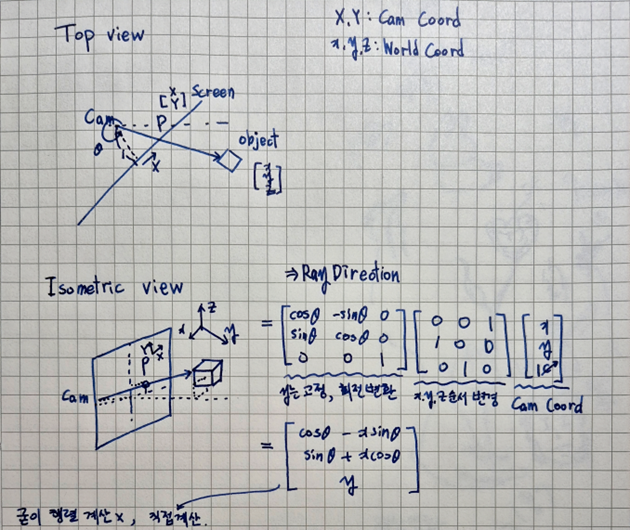 Top view
X,Y: Cam Coord
x,y,z: World Coord
[X Y]
Screen
Cam
P
object
θ
X
[x y z]
Isometric view
⇒ Ray Direction
z
x
y
Y X
P
Cam
= [cosθ -sinθ 0
sinθ cosθ 0
0 0 1]
[0 0 1
1 0 0
0 1 0]
[x
y
1]
고정, 회전변환
x,y,z순서 변경
Cam Coord
= [cosθ - xsinθ
sinθ + xcosθ
y]
굳이 행렬 계산 x, 직접계산.